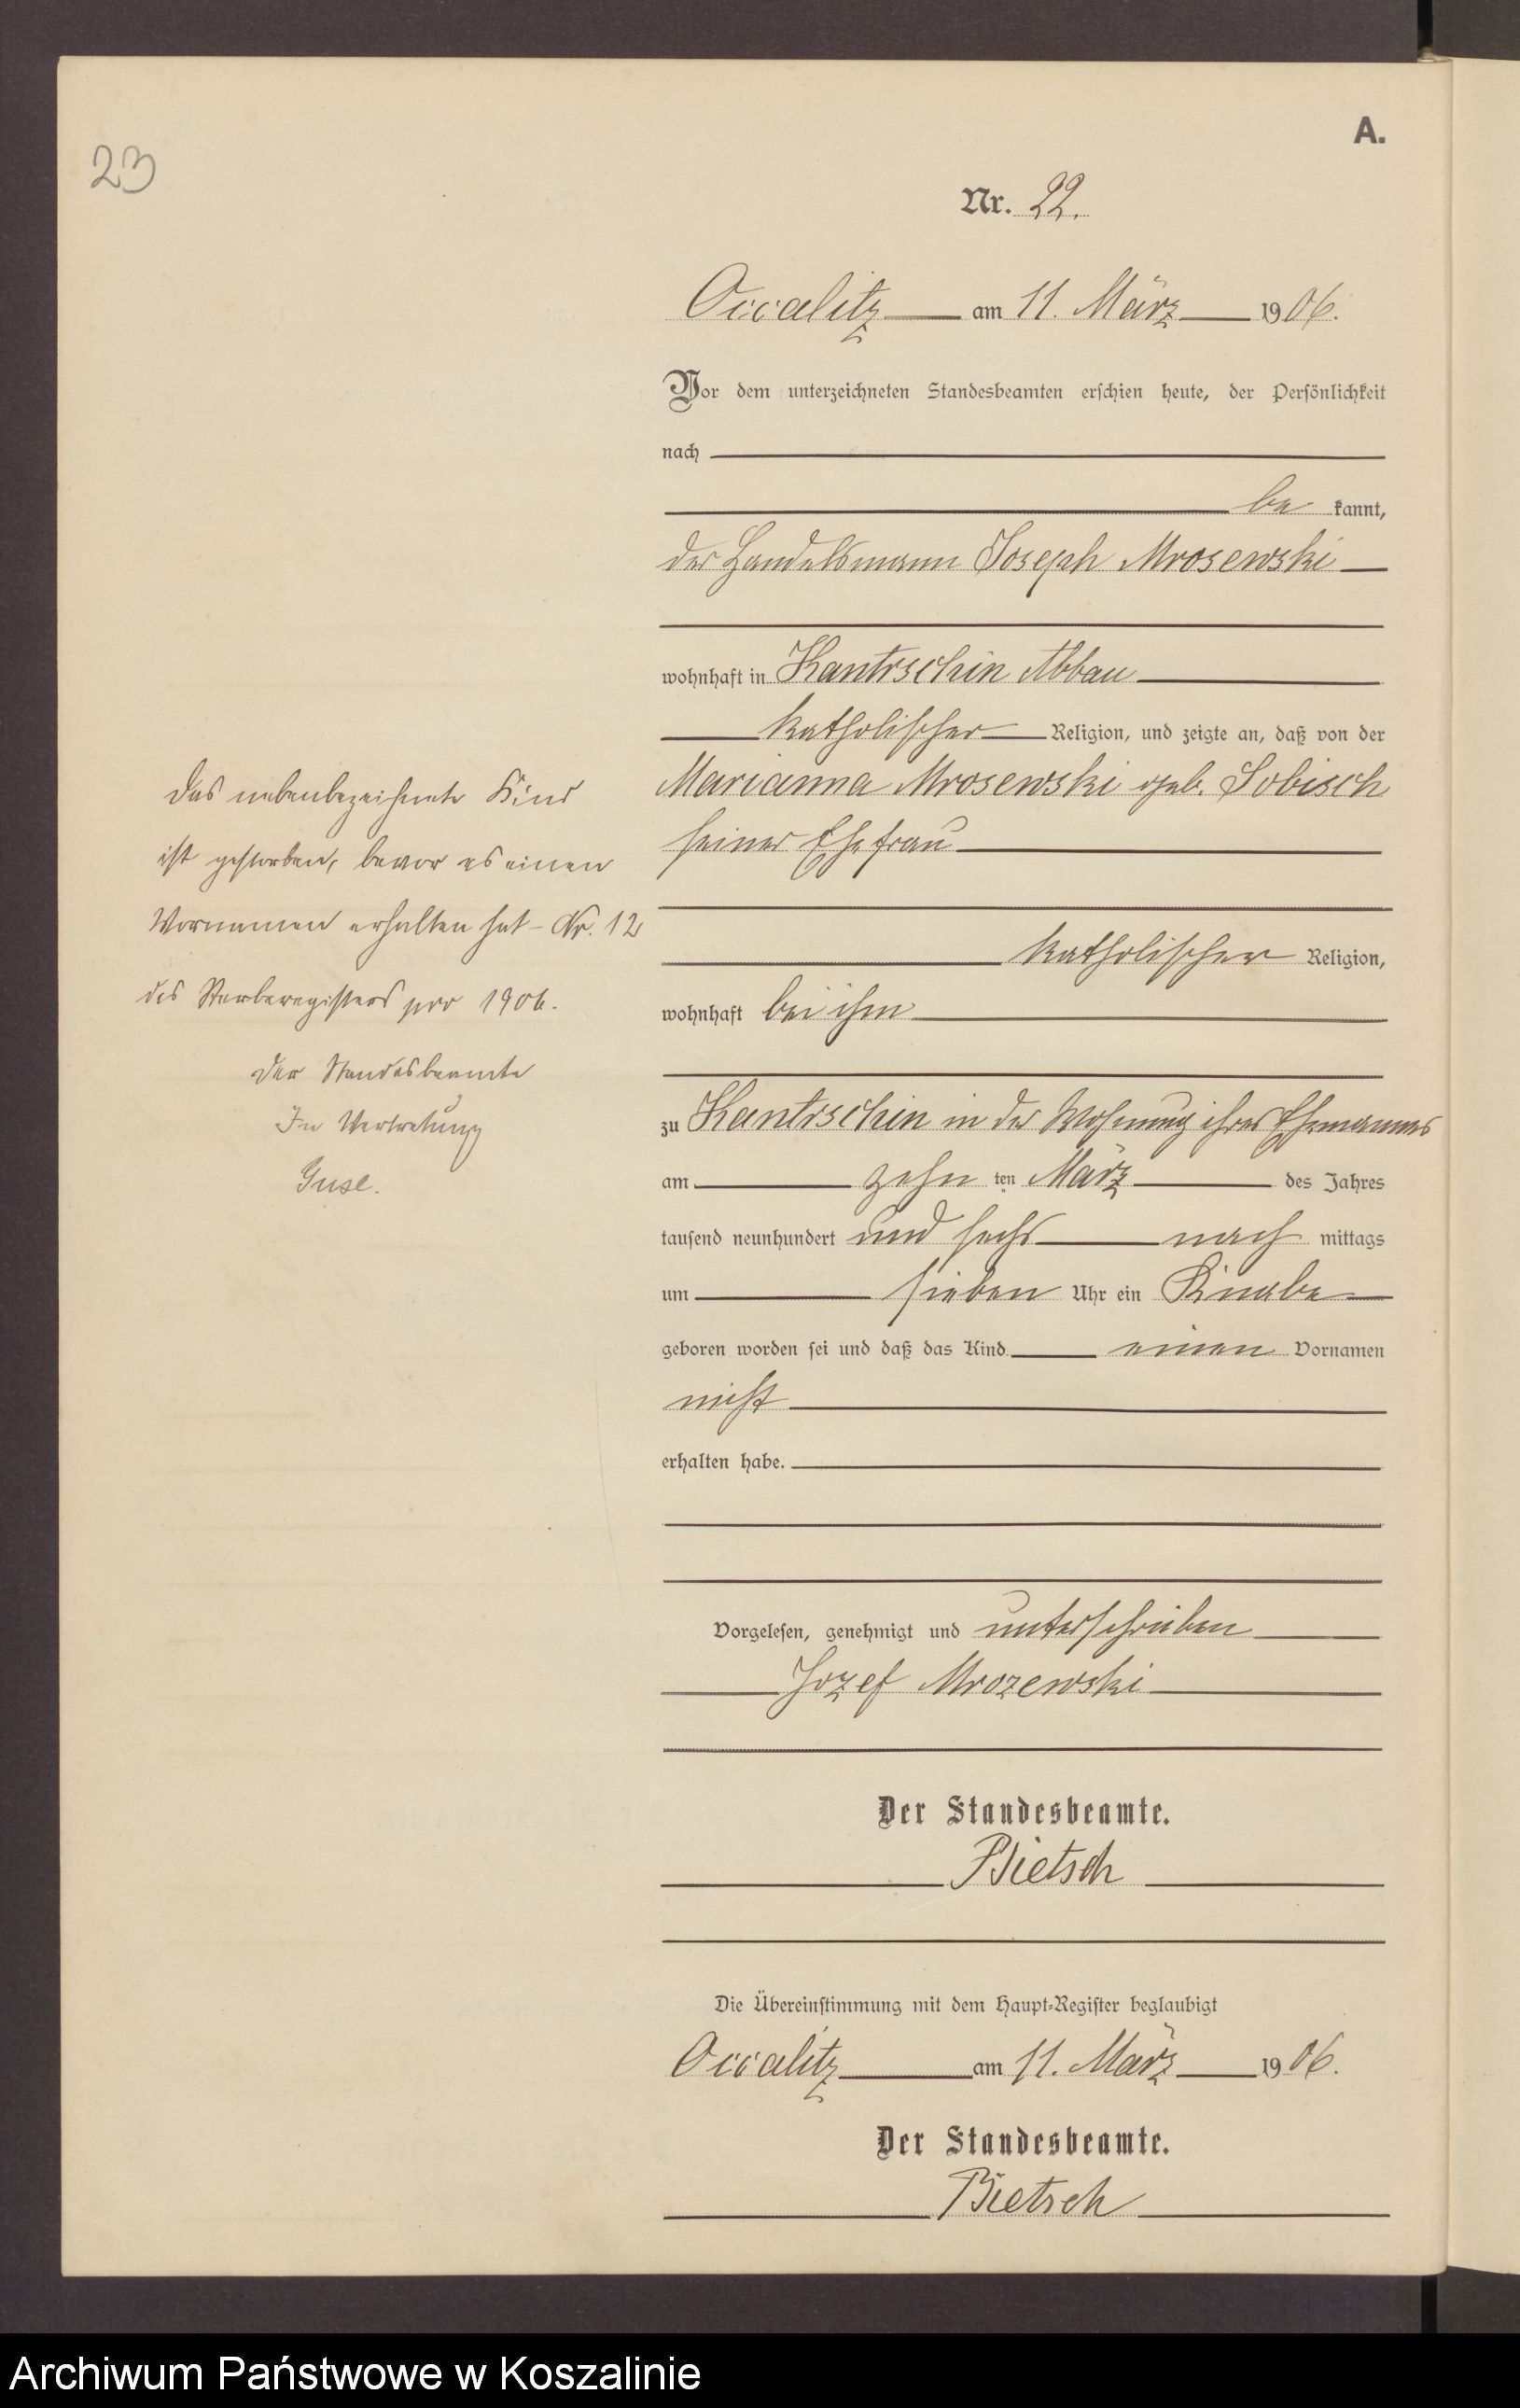 23
A.
Nr. 22.
Occalitz am 11. März 1906.
Vor dem unterzeichneten Standesbeamten erschien heute, der Persönlichkeit
nach
be kannt,
der Handelsmann Joseph Mrosewski
wohnhaft in Kantrschin Abbau
katholischer Religion, und zeigte an, daß von der
Marianna Mrosewski geb. Sobisch
seiner Ehefrau
katholischer Religion,
wohnhaft bei ihm
zu Kantrschin in der Wohnung ihres Ehemannes
am zehn ten März des Jahres
tausend neunhundert und sechs nach mittags
um sieben Uhr ein Knabe
geboren worden sei und daß das Kind einen Vornamen
nicht
erhalten habe.
Vorgelesen, genehmigt und unterschrieben
Jozef Mrozewski
Der Standesbeamte.
Bietsch
Die Übereinstimmung mit dem Haupt-Register beglaubigt
Occalitz am 11. März 1906.
Der Standesbeamte.
Bietsch
Das nebenbezeichnete Kind
ist gestorben, bevor es einen
Vornamen erhalten hat - Nr. 12
des Sterberegisters pro 1906.
Der Standesbeamte
In Vertretung
Guse.
Archiwum Państwowe w Koszalinie